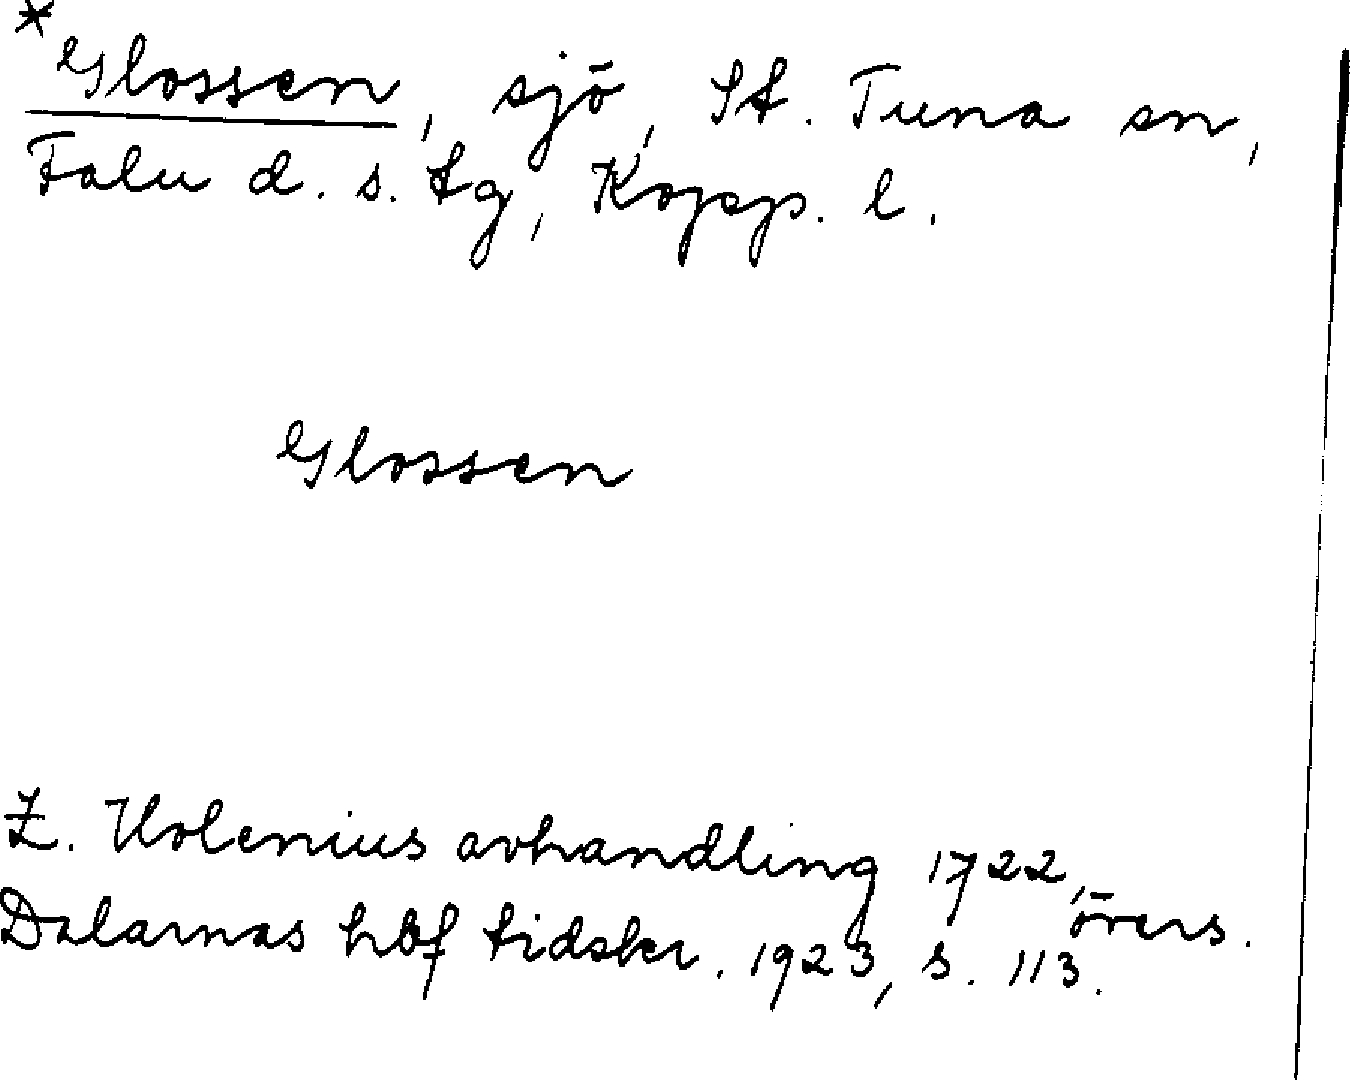 *Glossen, sjö, St. Tuna sn,
Falu d. s. tg, Kopp. l.
Glossen
Z. Holenius avhandling 1722, övers.
Dalarnas hbf tidskr. 1923, s. 113.